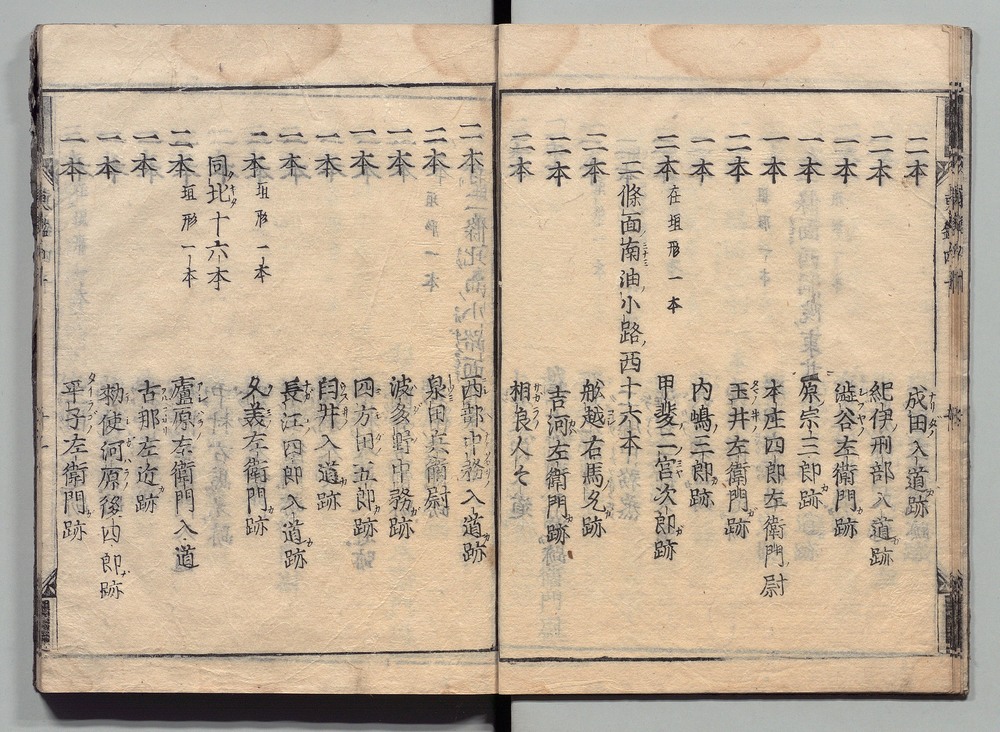 二本 成田入道跡
二本 紀伊刑部入道跡
一本 澁谷左衛門跡
一本 原宗三郎跡
一本 本庄四郎左衛門尉
二本 玉井左衛門跡
一本 内嶋三郎跡
三本 在垣形一本 甲斐二宮次郎跡
二條面南油小路西十六本
二本 舩越右馬允跡
二本 吉河左衛門跡
二本 相良人々
二本 西部中務入道跡
二本 垣形一本 泉田兵衛尉
一本 波多野中務跡
一本 四方田五郎跡
一本 臼井入道跡
二本 長江四郎入道跡
二本 垣形一本 久義左衛門跡
同北十六本
二本 垣形一本 蘆原左衛門入道
一本 古那左近跡
一本 勅使河原後四郎跡
二本 平子左衛門跡